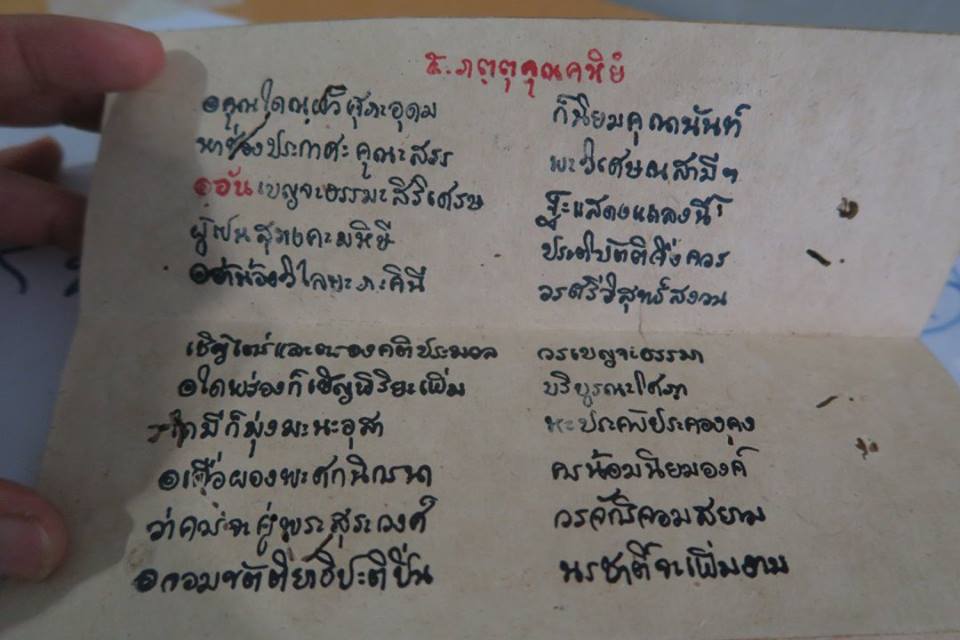 ๕. ภตฺตุคุณคหิยํ
๏ คุณใดณผัวศุภะอุดม ก็นิยมคุณานันท์
นาซ่องประกาศะคุณะสรร พะวิเศษณสามีฯ
๏ อันเบญจะธรรมะสิริเศรษ ฐะแสดงแถลงนี้
ผู้เปนสุภคะมหิษี ประติบัติจึ่งควร
๏ อ่าน้องวิไลยะภะคินี วรศรีวิสุทธิ์สงวน
เชิญไตร่และตรองคติประมวล วรเบญจะธรรมา
๏ ใดพร่องก็เชิญพิริยะเพิ่ม บริบูรณะโศภา
มีก็มุ่งมะนะอุสา หะประคับประคองคง
๏ เพื่อผองพะศกนิกร ควรน้อมนิยมองค์
ว่าควรจะคู่พระสุระวงศ์ วรจักริจอมสยาม
๏ จอมขัตติยาธิปะติปิ่น นรชาติ์จะเพิ่มงาม